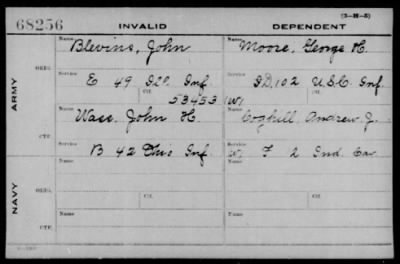 (3-H-5)
68256 INVALID DEPENDENT
Name Name
Blevins, John Moore, George H.
ORIG. Service Service
E 49 Ill. Inf D, 102 U.S.C. Inf
Ctf. 53453 Ctf. (W)
ARMY
Name Name
Wase, John H. Coghill, Andrew J.
CTF. Service Service
B 42 Ohio Inf W. F 2 Ind. Cav
Name Name
ORIG.
Service Ctf. Service Ctf.
NAVY
Name Name
CTF.
Service Service